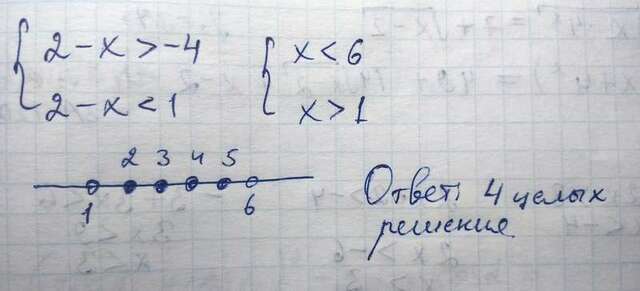 2-x>-4 x<6
2-x<1 x>1
2 3 4 5
1 6
Ответ: 4 целых
решение